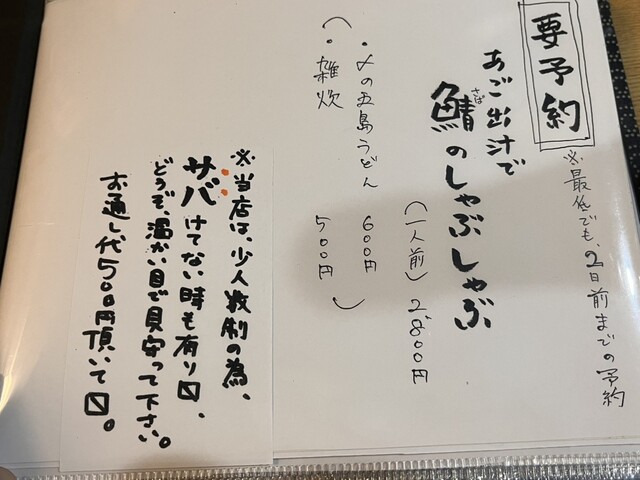 要予約
※最低でも、2日前までの予約
あご出汁で
鯖のしゃぶしゃぶ
さば
(一人前) 2,800円
(・〆の五島うどん 600円
・雑炊 500円)
※当店は、少人数制の為、
サバけてない時も有り〼、
どうぞ、温かい目で見守って下さい。
お通し代500円頂いて〼。